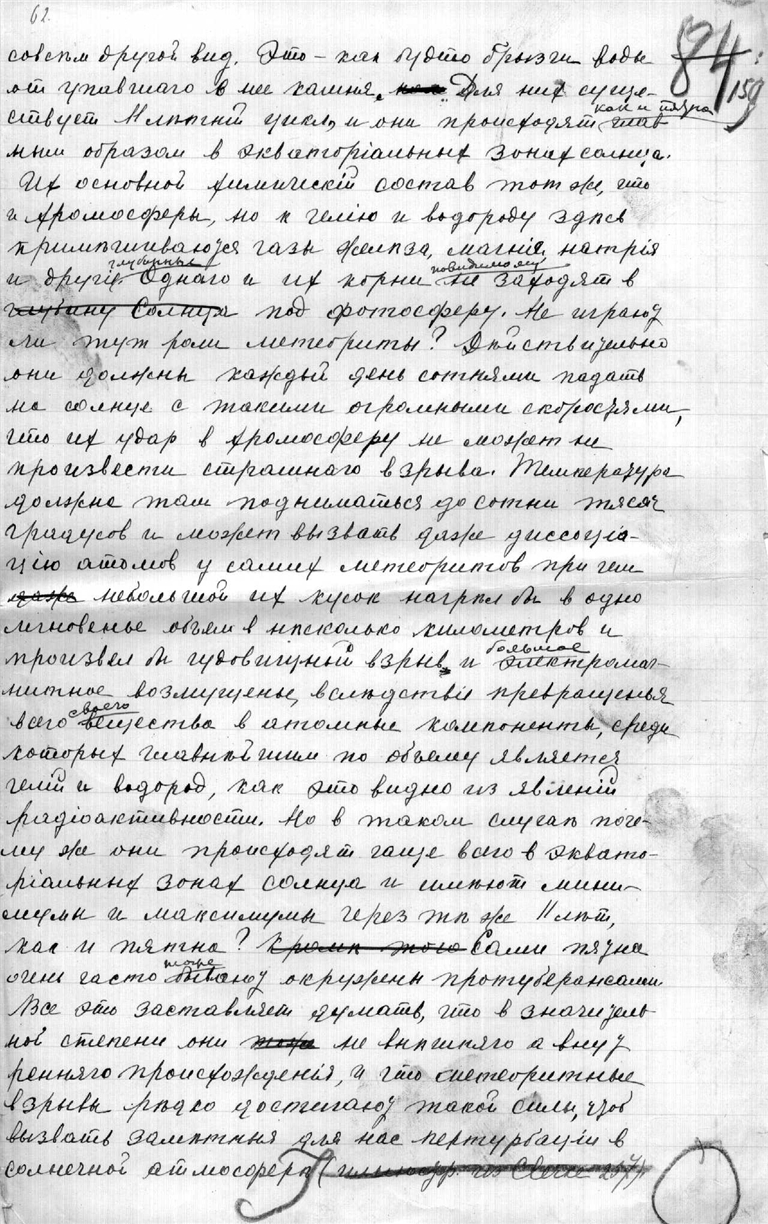 62.
84
159
совсем другой вид. Это – как будто брызги воды
от упавшаго в нее камня. Для них суще-
ствует 11 летний цикл, и они происходят как и пятна глав
ным образом в экваторіальных зонах солнца.
Их основной химическій состав тот же, что
и хромосферы, но к гелію и водороду здесь
примешиваются газы железа, магнія, натрія
и другіе. глубинные Однаго и их корни повидимому не заходят в
глубину Солнца под фотосферу. Не играют
ли тут роли метеориты? Действительно
они должны каждый день сотнями падать
на солнце с такими огромными скоростями,
что их удар в хромосферу не может не
произвести страшнаго взрыва. Температура
должна там подниматься до сотни тысяч
градусов и может вызвать даже диссоціа-
цію атомов у самих метеоритов при чем
даже небольшой их кусок нагрел бы в одно
мгновенье объем в несколько километров и
произвел бы чудовищный взрыв, и большое электромаг-
нитное возмущенье, вследствіе превращенья
всего своего вещества в атомные компоненты, среди
которых главнейшим по объему является
гелій и водород, как это видно из явленій
радіоактивности. Но в таком случае поче-
му же они происходят чаще всего в эквато-
ріальных зонах солнца и имеют мини-
мумы и максимумы через те же 11 лет,
как и пятна? Кроме того Сами пятна
очень часто тоже бывают окружены протуберансами
Все это заставляет думать, что в значитель-
ной степени они тоже не внешняго а внут
ренняго происхожденія, и что метеоритные
взрывы редко достигают такой силы, чтоб
вызвать заметныя для нас пертурбаціи в
солнечной атмосфере